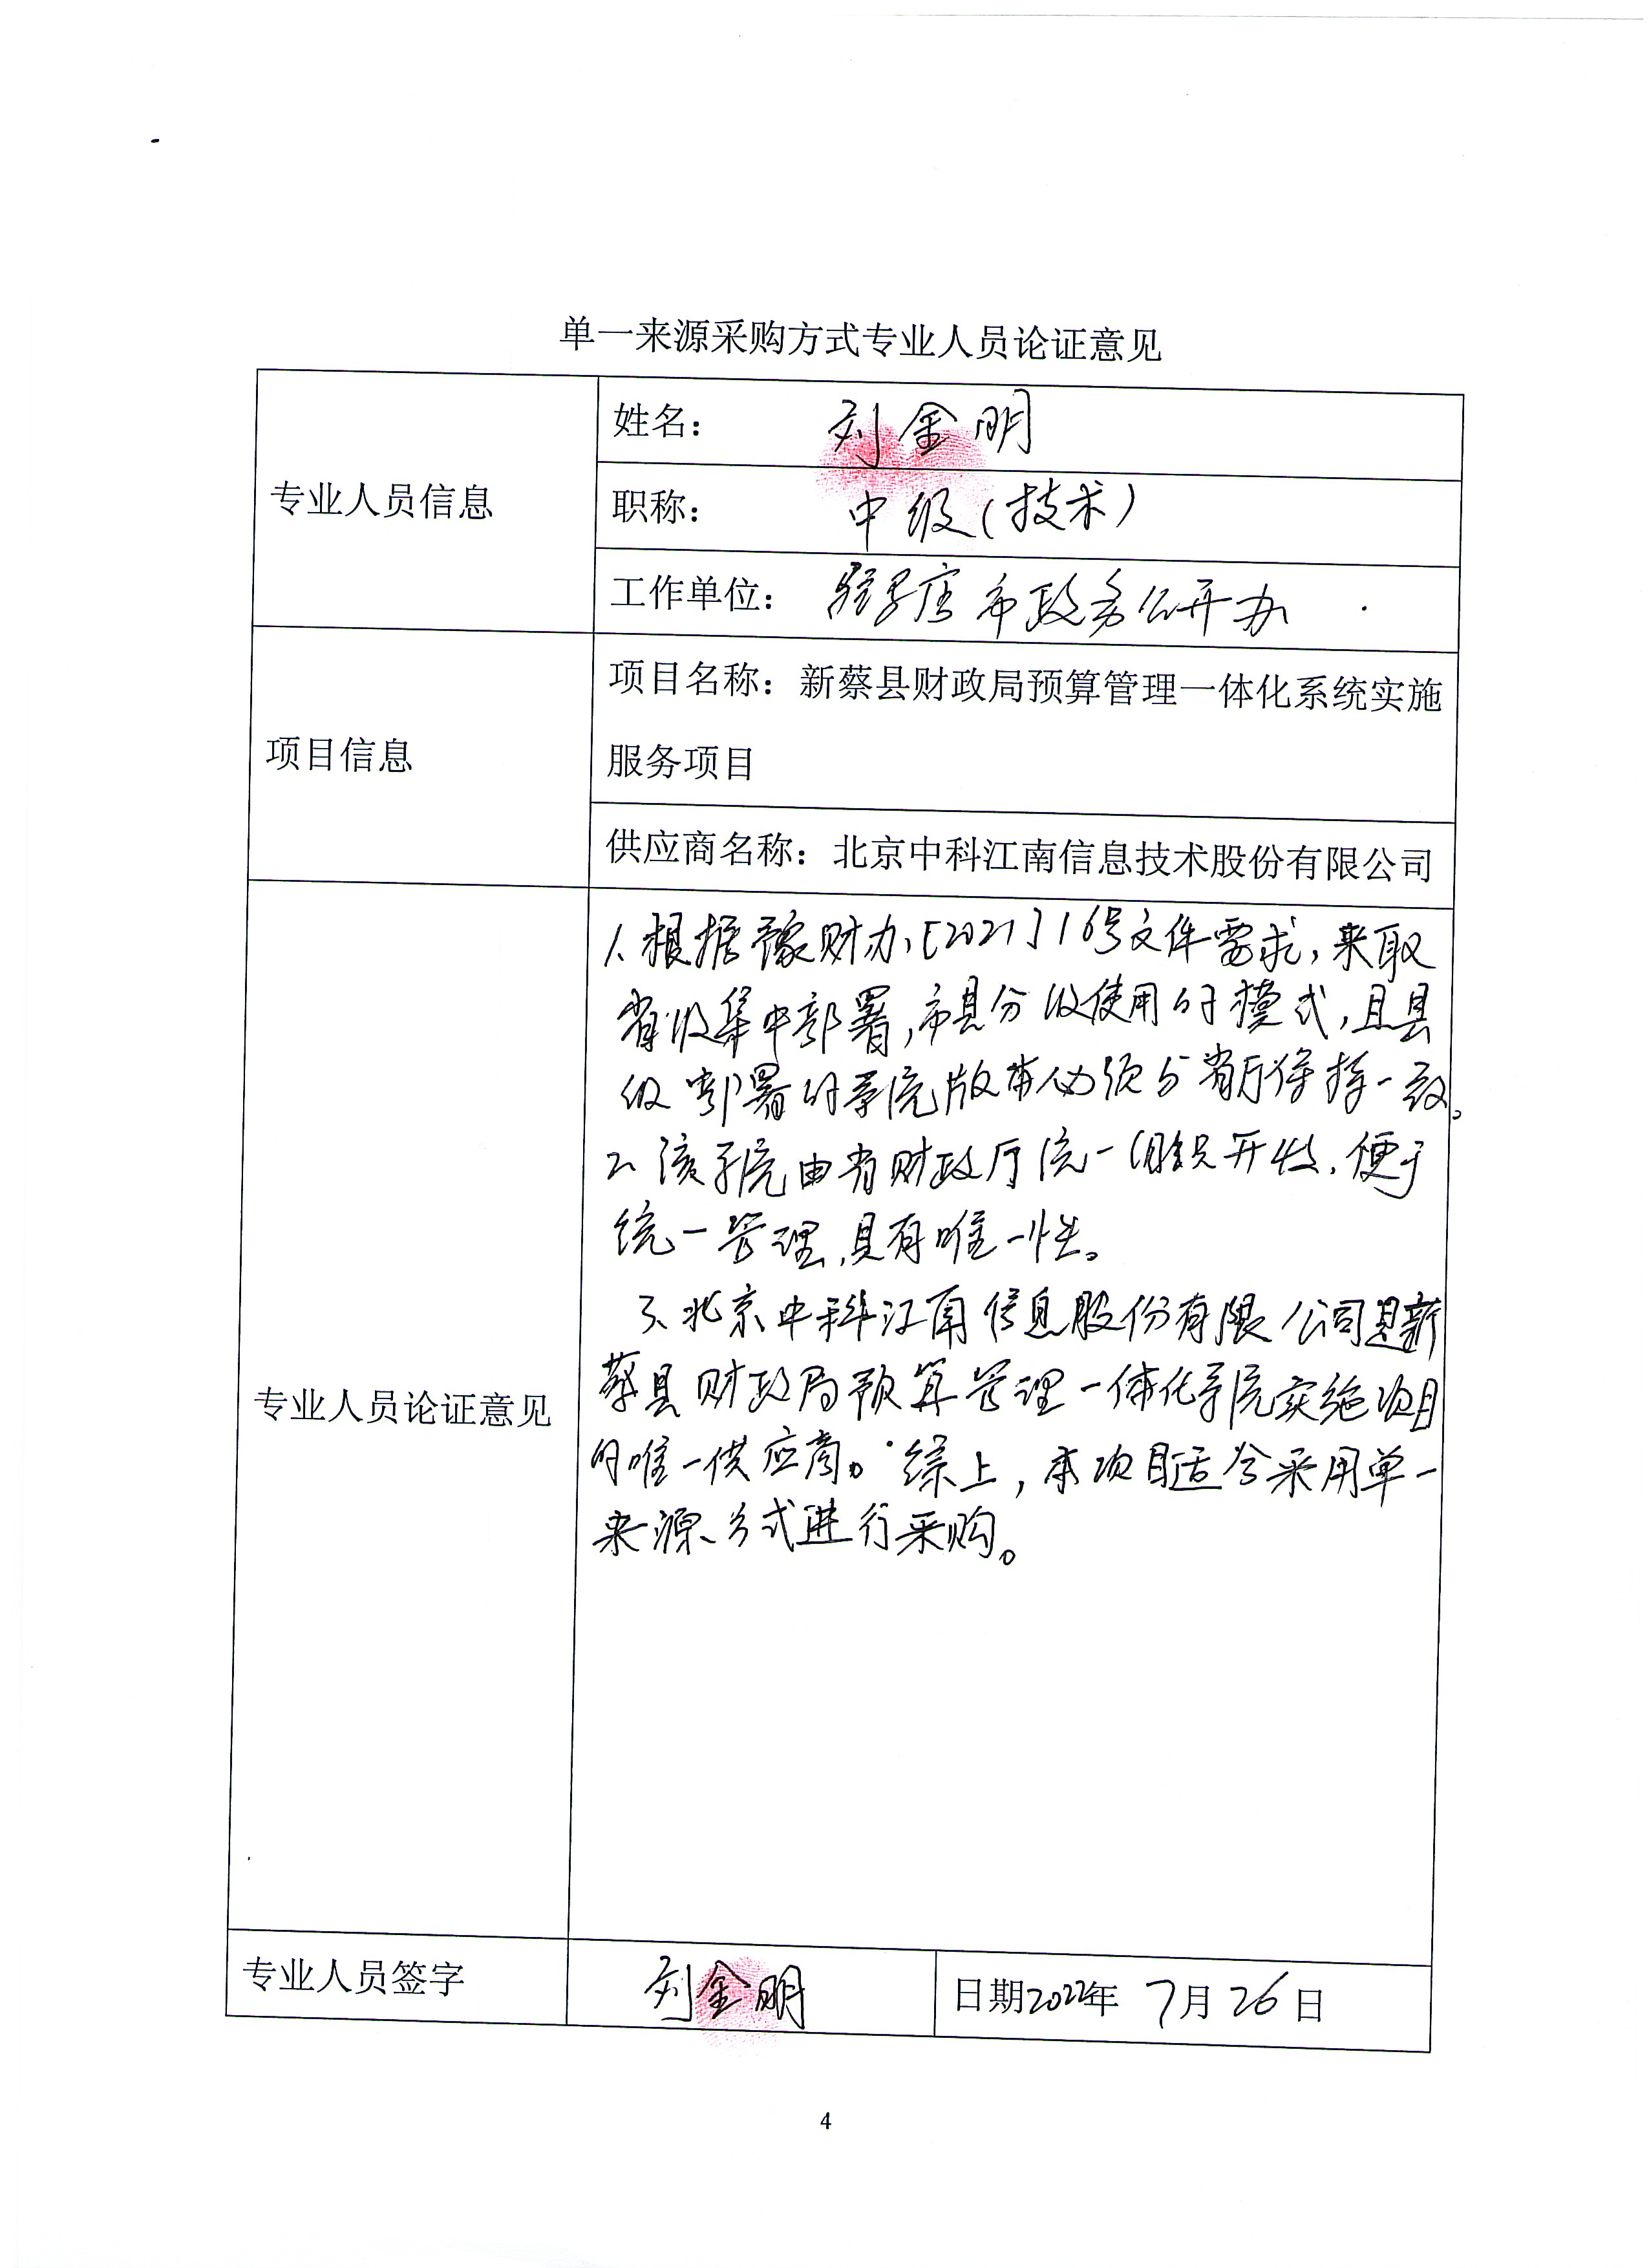 单一来源采购方式专业人员论证意见
专业人员信息
姓名： 刘金明
职称： 中级（技术）
工作单位： 驻马店市政务公开办
项目信息
项目名称：新蔡县财政局预算管理一体化系统实施
服务项目
供应商名称：北京中科江南信息技术股份有限公司
专业人员论证意见
1、根据豫财办〔2021〕16号文件需求，采取
省级集中部署，市县分级使用的模式，且县
级部署的系统版本必须与省厅保持一致。
2、该系统由省财政厅统一组织开发，便于
统一管理，具有唯一性。
3、北京中科江南信息股份有限公司是新
蔡县财政局预算管理一体化系统实施项目
的唯一供应商。综上，本项目适合采用单一
来源方式进行采购。
专业人员签字
刘金明
日期2022年 7月26日
4